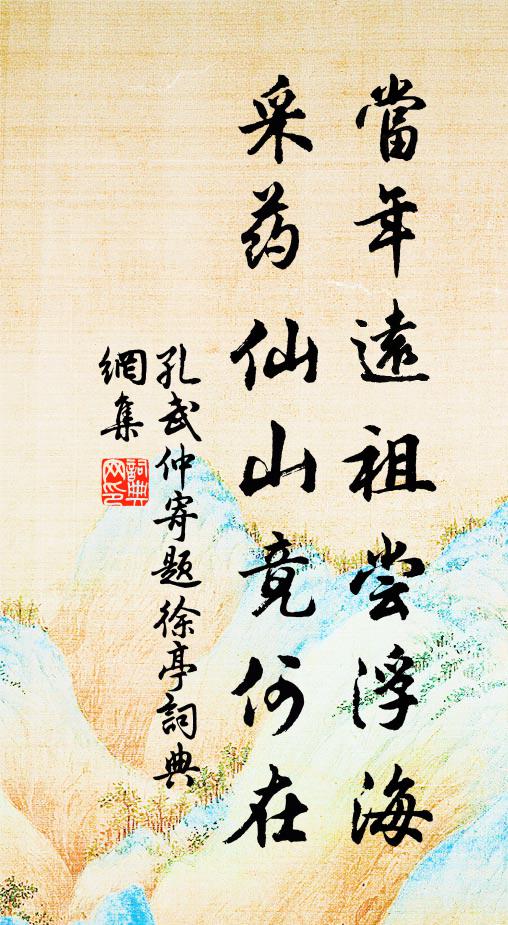 當年遠祖尝浮海
采药仙山竟何在
孔武仲寄题徐亭詞典
網集
詞典
网印